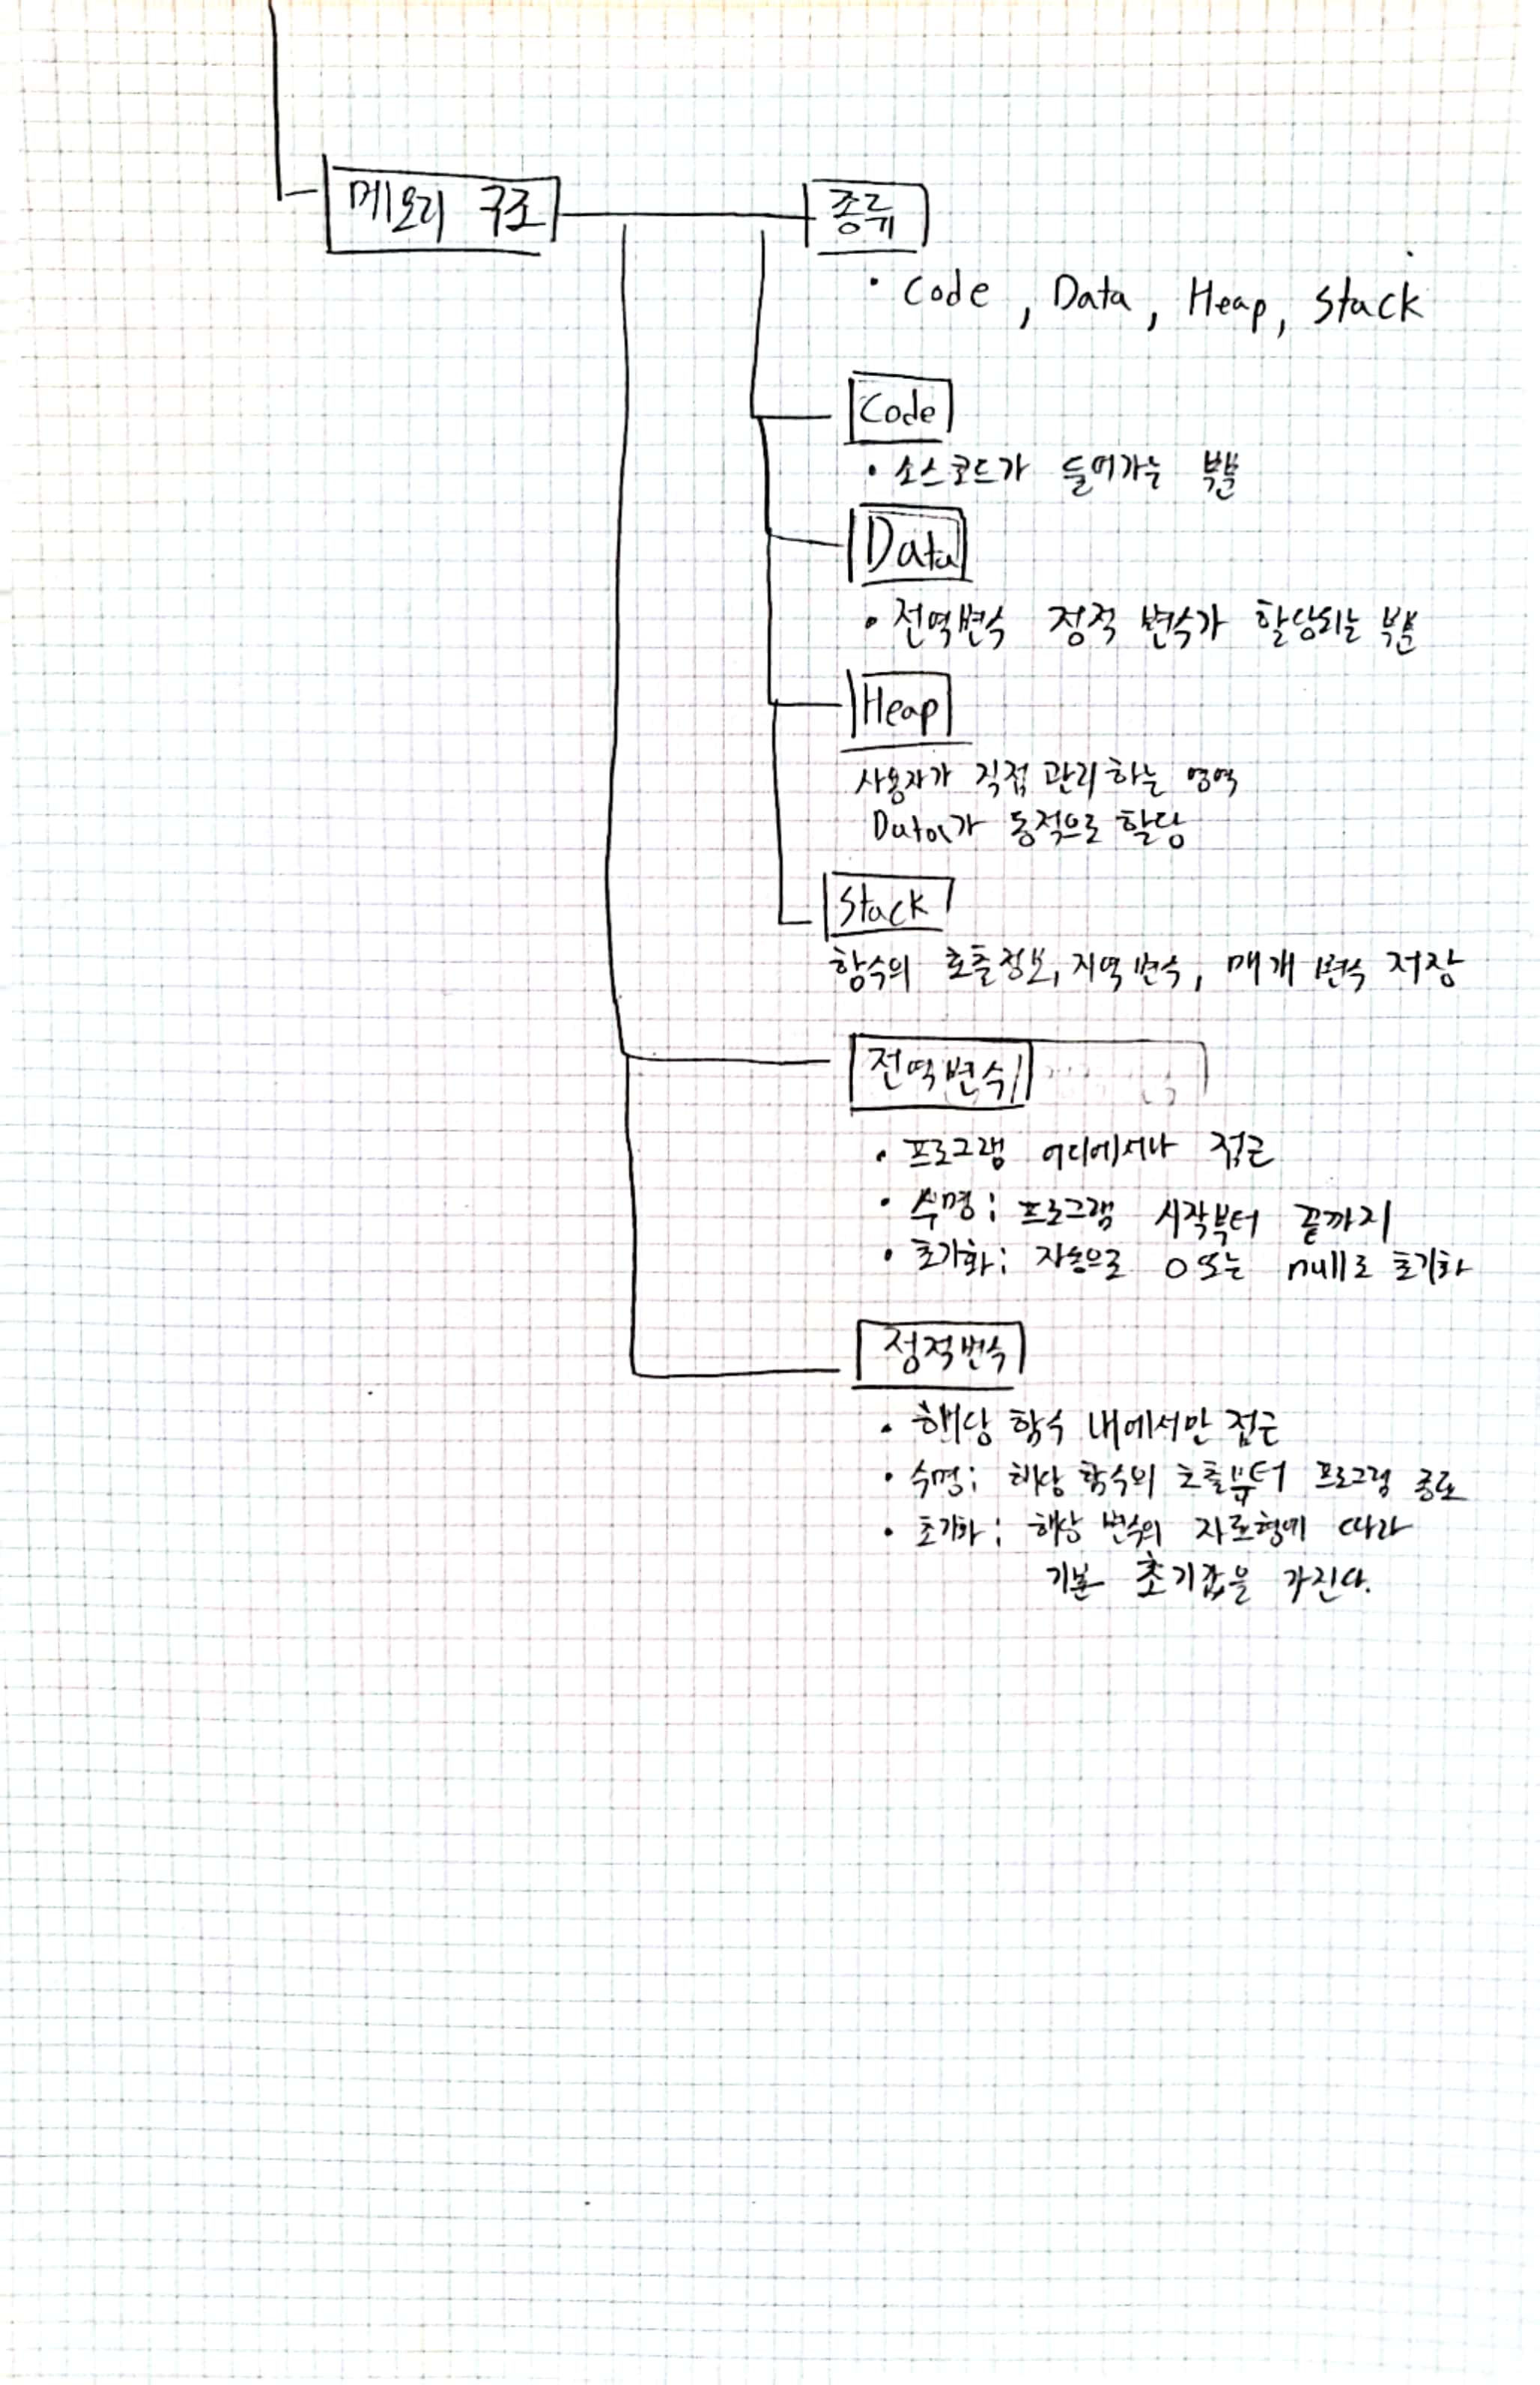 메모리 구조
종류
• Code, Data, Heap, Stack
Code
• 소스코드가 들어가는 부분
Data
• 전역변수 정적 변수가 할당되는 부분
Heap
사용자가 직접 관리하는 영역
Data가 동적으로 할당
Stack
함수의 호출정보, 지역변수, 매개변수 저장
전역변수
• 프로그램 어디에서나 접근
• 수명: 프로그램 시작부터 끝까지
• 초기화: 자동으로 0 또는 null로 초기화
정적변수
• 해당 함수 내에서만 접근
• 수명: 해당 함수의 호출부터 프로그램 종료
• 초기화: 해당 변수의 자료형에 따라
기본 초기값을 가진다.